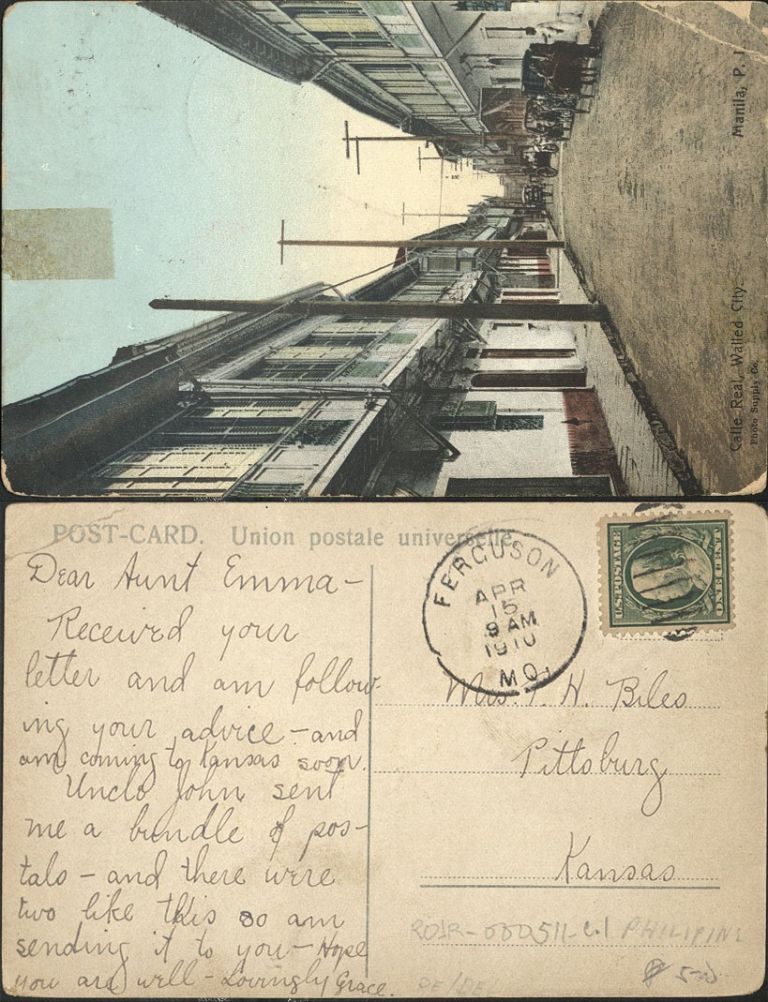 Calle Real, Walled City.
Photo Supply Co.
Manila, P. I.
POST-CARD. Union postale universelle.
Dear Aunt Emma-
Received your
letter and am follow-
ing your advice - and
am coming to Kansas soon.
Uncle John sent
me a bundle of pos-
tals - and there were
two like this so am
sending it to you - Hope
you are well - Lovingly Grace.
FERGUSON
APR
15
9 AM
1910
MO.
U.S. POSTAGE
ONE CENT
Mrs. H. Biles
Pittsburg
Kansas
PHILIPINE